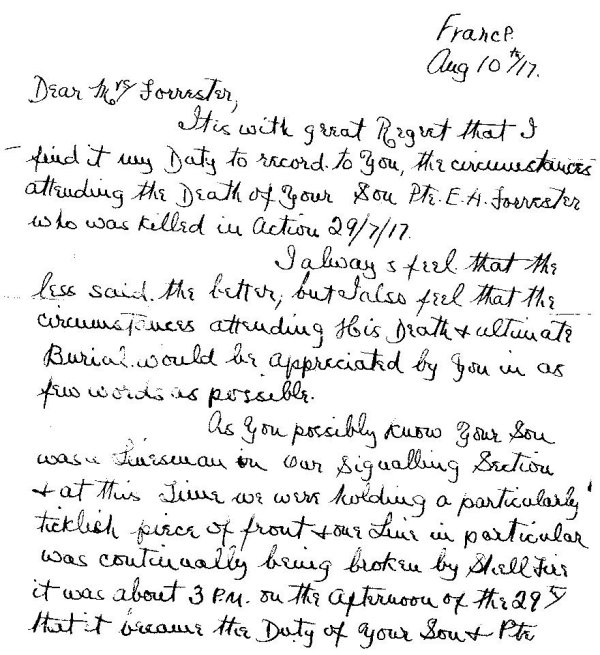 France.
Aug 10th/17.
Dear Mrs Forrester,
It is with great Regret that I
find it my Duty to record to You, the circumstances
attending the Death of Your Son Pte. E. A. Forrester
who was killed in Action 29/7/17.
I always feel that the
less said the better, but I also feel that the
circumstances attending His Death & ultimate
Burial would be appreciated by You in as
few words as possible.
As You possibly know Your Son
was a Linesman in our Signalling Section
& at this Time we were holding a particularly
ticklish piece of front & one Line in particular
was continually being broken by Shell Fire
it was about 3 P.M. on the Afternoon of the 29th
that it became the Duty of Your Son & Pte